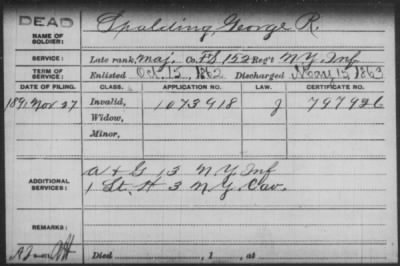 DEAD
NAME OF SOLDIER: Spalding, George R.
SERVICE: Late rank, Maj. Co. F&S 152 Reg't N.Y. Inf
TERM OF SERVICE: Enlisted Oct. 15, 1862 Discharged 15, 1863
DATE OF FILING. CLASS. APPLICATION NO. LAW. CERTIFICATE NO.
1891 Nov 27 Invalid, 1073918 J 797926
Widow,
Minor,
ADDITIONAL SERVICES: A & G 13 N.Y. Inf
1 Lt. H 3 N.Y. Cav.
REMARKS:
Died , 1 , at